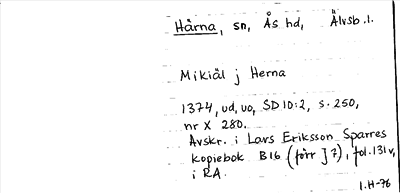 Härna, sn, Ås hd, Älvsb.l.
Mikiäl j Herna
1374, ud, uo, SD 10:2, s. 250,
nr X 280.
Avskr. i Lars Eriksson Sparres
kopiebok B16 (förr J 7), fol. 131v,
i RA.
1.H-76